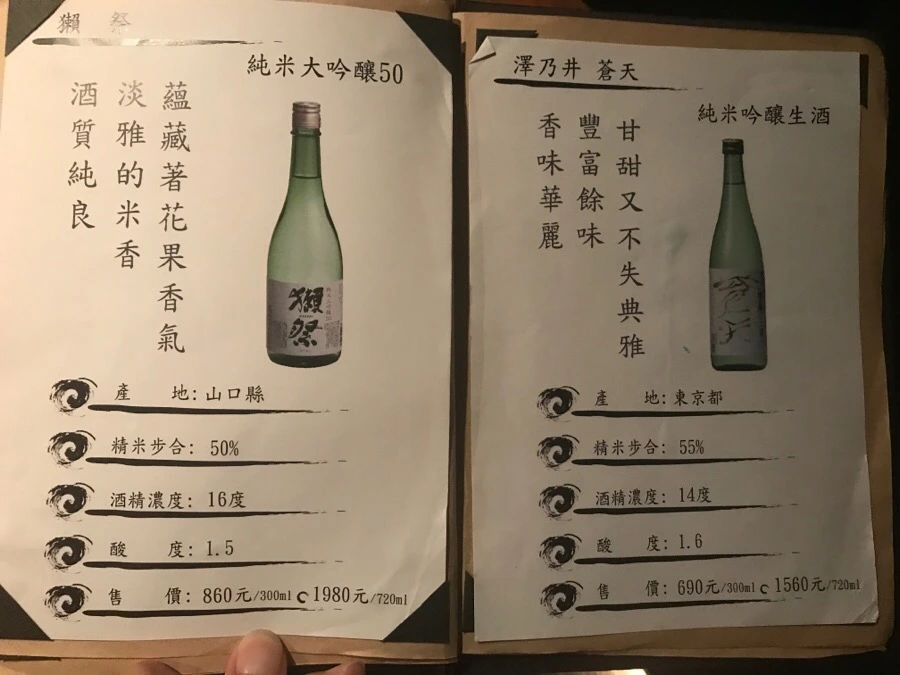 獺 祭
純米大吟釀50
蘊藏著花果香氣
淡雅的米香
酒質純良
獺祭
純米大吟釀50
產 地: 山口縣
精米步合: 50%
酒精濃度: 16度
酸 度: 1.5
售 價: 860元/300ml 1980元/720ml
澤乃井 蒼天
純米吟釀生酒
甘甜又不失典雅
豐富餘味
香味華麗
蒼天
產 地: 東京都
精米步合: 55%
酒精濃度: 14度
酸 度: 1.6
售 價: 690元/300ml 1560元/720ml